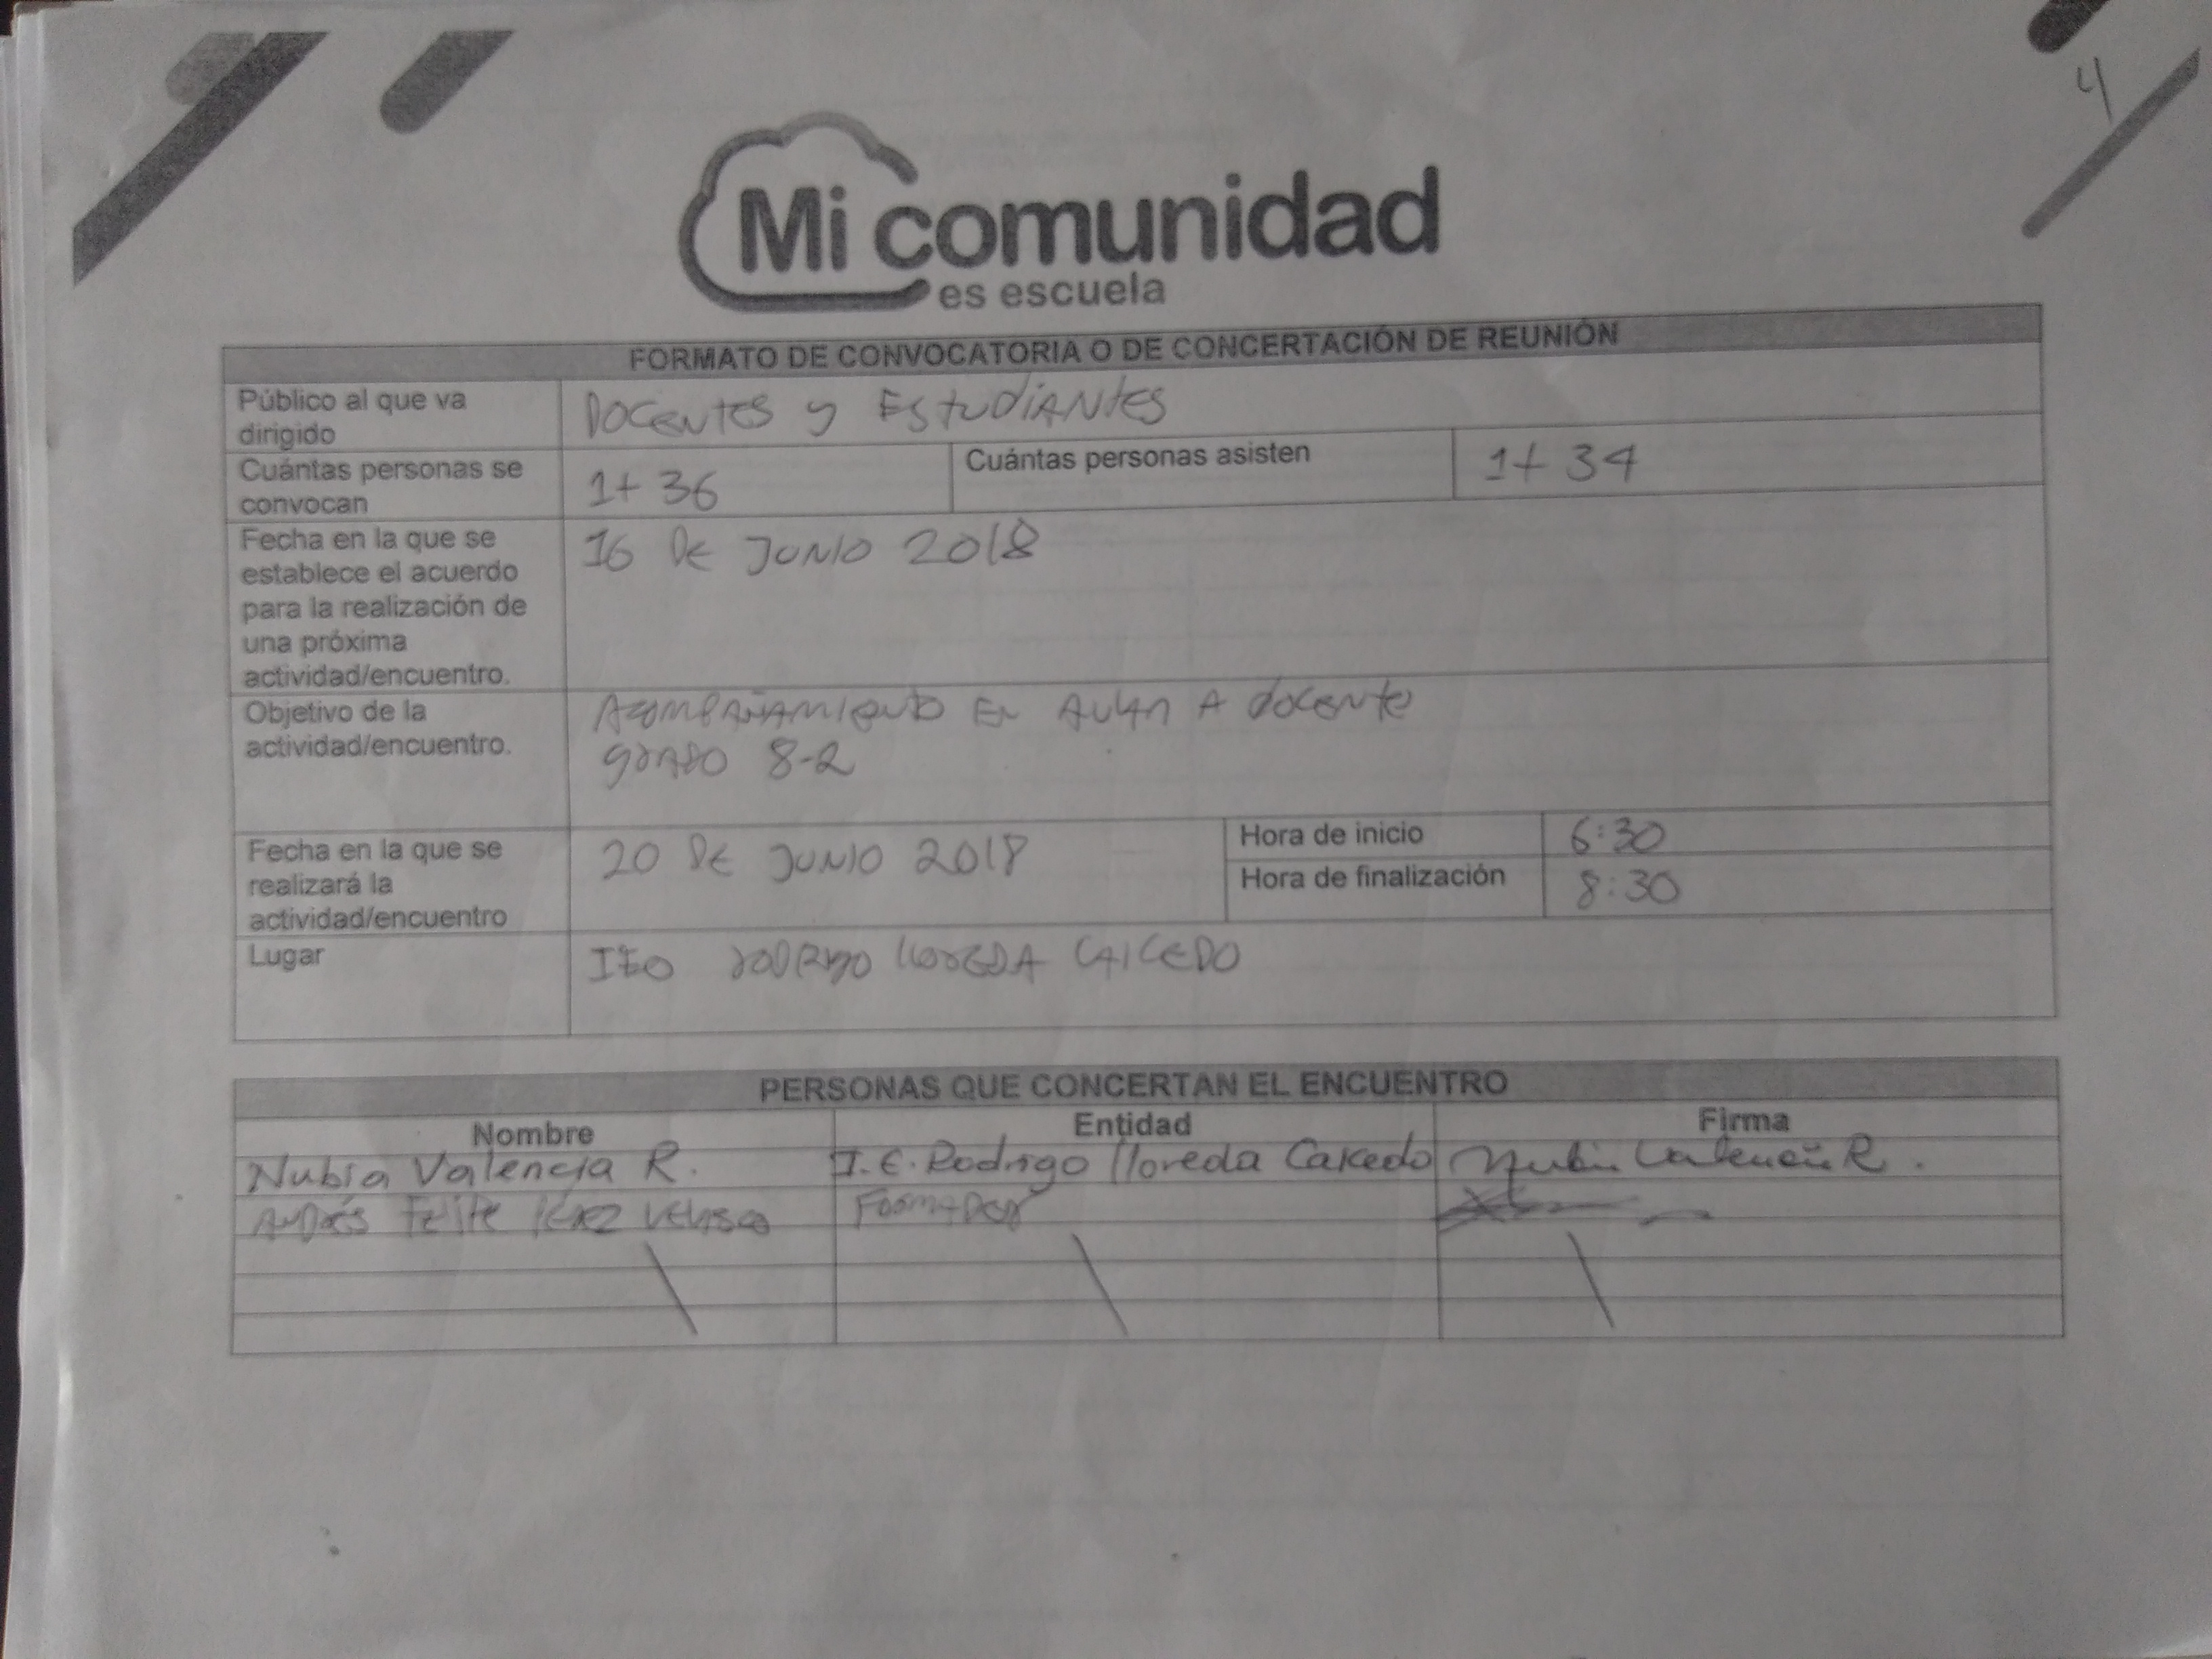 4
Mi comunidad
es escuela
FORMATO DE CONVOCATORIA O DE CONCERTACIÓN DE REUNIÓN
Público al que va
dirigido
DOCENTES y ESTUDIANTES
Cuántas personas se
convocan
1+ 36
Cuántas personas asisten
1+ 34
Fecha en la que se
establece el acuerdo
para la realización de
una próxima
actividad/encuentro.
16 DE JUNIO 2018
Objetivo de la
actividad/encuentro.
ACOMPAÑAMIENTO EN AULA A docente
grado 8-2
Fecha en la que se
realizará la
actividad/encuentro
20 DE JUNIO 2018
Hora de inicio
6:30
Hora de finalización
8:30
Lugar
IEO RODRIGO LLOREDA CAICEDO
PERSONAS QUE CONCERTAN EL ENCUENTRO
Nombre Entidad Firma
Nubia Valencia R. I.E. Rodrigo Lloreda Caicedo Nubia Valencia R.
ANDRÉS FELIPE VELASCO FORMADOR